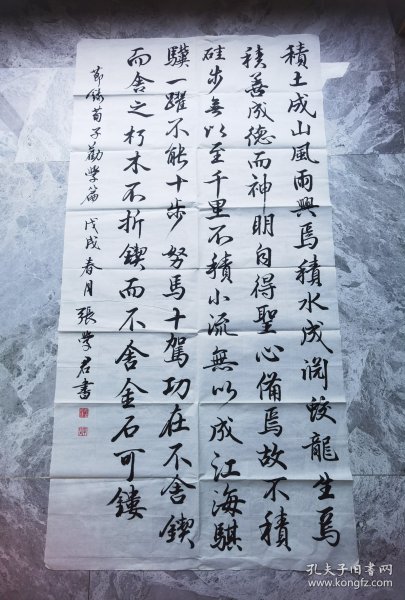 積土成山風雨興焉積水成渕蛟龍生焉
積善成德而神明自得聖心備焉故不積
硅步無以至千里不積小流無以成江海騏
驥一躍不能十步努馬十駕功在不舍鍥
而舍之朽木不折鍥而不舍金石可鏤
節錄荀子勸學篇 戊戌春月張學君書
孔夫子旧书网
www.kongfz.com